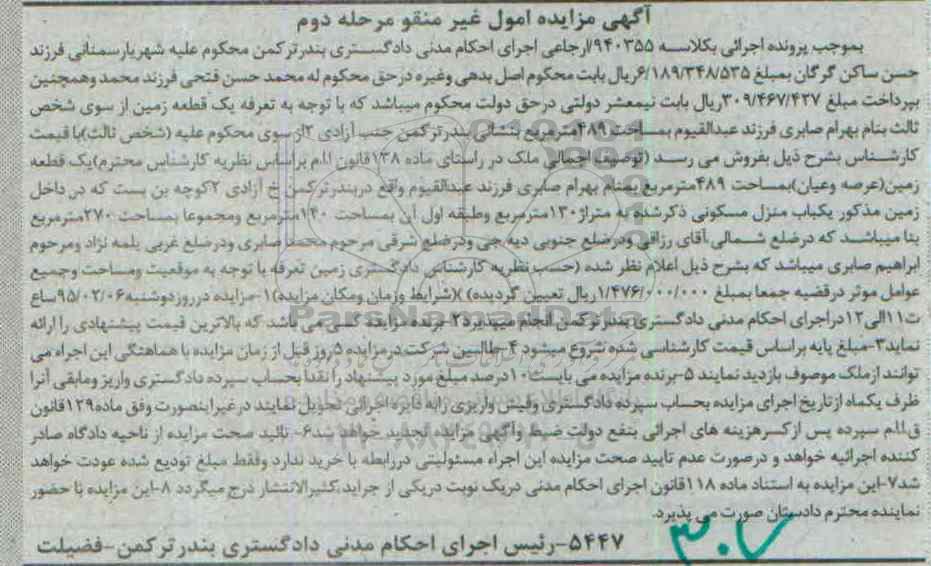 آگهی مزایده امول غیر منقو مرحله دوم
بموجب پرونده اجرائی بکلاسه ۹۴۰۳۵۵/ارجاعی اجرای احکام مدنی دادگستری بندرترکمن محکوم علیه شهریارسمنانی فرزند
حسن ساکن گرگان بمبلغ ۶/۱۸۹/۳۴۸/۵۳۵ریال بابت محکوم اصل بدهی وغیره درحق محکوم له محمد حسن فتحی فرزند محمد وهمچنین
بپرداخت مبلغ ۳۰۹/۴۶۷/۴۲۷ریال بابت نیمعشر دولتی درحق دولت محکوم میباشد که با توجه به تعرفه یک قطعه زمین از سوی شخص
ثالث بنام بهرام صابری فرزند عبدالقیوم بمساحت ۴۸۹مترمربع بنشانی بندرترکمن جنب آزادی ۲از سوی محکوم علیه (شخص ثالث)با قیمت
کارشناس بشرح ذیل بفروش می رسد (توصیف اجمالی ملک در راستای ماده ۱۳۸قانون ا.ا.م براساس نظریه کارشناس محترم)یک قطعه
زمین(عرصه وعیان)بمساحت ۴۸۹مترمربع بمنام بهرام صابری فرزند عبدالقیوم واقع دربندرترکمن خ آزادی ۲کوچه بن بست که در داخل
زمین مذکور یکباب منزل مسکونی ذکرشده به متراژ۱۳۰مترمربع وطبقه اول آن بمساحت ۱۴۰مترمربع ومجموعا بمساحت ۲۷۰مترمربع
بنا میباشد که درضلع شمالی آقای رزاقی ودرضلع جنوبی دیه جی ودرضلع شرقی مرحوم محمد صابری ودرضلع غربی یلمه نژاد ومرحوم
ابراهیم صابری میباشد که بشرح ذیل اعلام نظر شده (حسب نظریه کارشناس دادگستری زمین تعرفه با توجه به موقعیت ومساحت وجمیع
عوامل موثر درقضیه جمعا بمبلغ ۱/۴۷۶/۰۰۰/۰۰۰ریال تعیین گردیده) )(شرایط وزمان ومکان مزایده)۱-مزایده درروزدوشنبه ۹۵/۰۲/۰۶ساع
ت۱۱الی۱۲دراجرای احکام مدنی دادگستری بندرترکمن انجام میپذیرد۲-برنده مزایده کسی می باشد که بالاترین قیمت پیشنهادی را ارائه
نماید۳-مبلغ پایه براساس قیمت کارشناسی شده شروع میشود ۴-طالبین شرکت درمزایده ۵روز قبل از زمان مزایده با هماهنگی این اجراء می
توانند ازملک موصوف بازدید نمایند ۵-برنده مزایده می بایست۱۰درصد مبلغ مورد پیشنهاد را نقداً بحساب سپرده دادگستری واریز ومابقی آنرا
ظرف یکماه ازتاریخ اجرای مزایده بحساب سپرده دادگستری وفیش واریزی رابه دایره اجرائی تحویل نمایند درغیراینصورت وفق ماده۱۲۹قانون
ق.ا.ا.م سپرده پس ازکسرهزینه های اجرائی بنفع دولت ضبط وآگهی مزایده تجدید خواهد شد۶- تائید صحت مزایده از ناحیه دادگاه صادر
کننده اجرائیه خواهد و درصورت عدم تایید صحت مزایده این اجراء مسئولیتی دررابطه با خرید ندارد وفقط مبلغ تودیع شده عودت خواهد
شد۷-این مزایده به استناد ماده ۱۱۸قانون اجرای احکام مدنی دریک نوبت دریکی از جراید،کثیرالانتشار درج میگردد ۸-این مزایده با حضور
نماینده محترم دادستان صورت می پذیرد.
۵۴۴۷-رئیس اجرای احکام مدنی دادگستری بندرترکمن-فضیلت
ParsNamadData